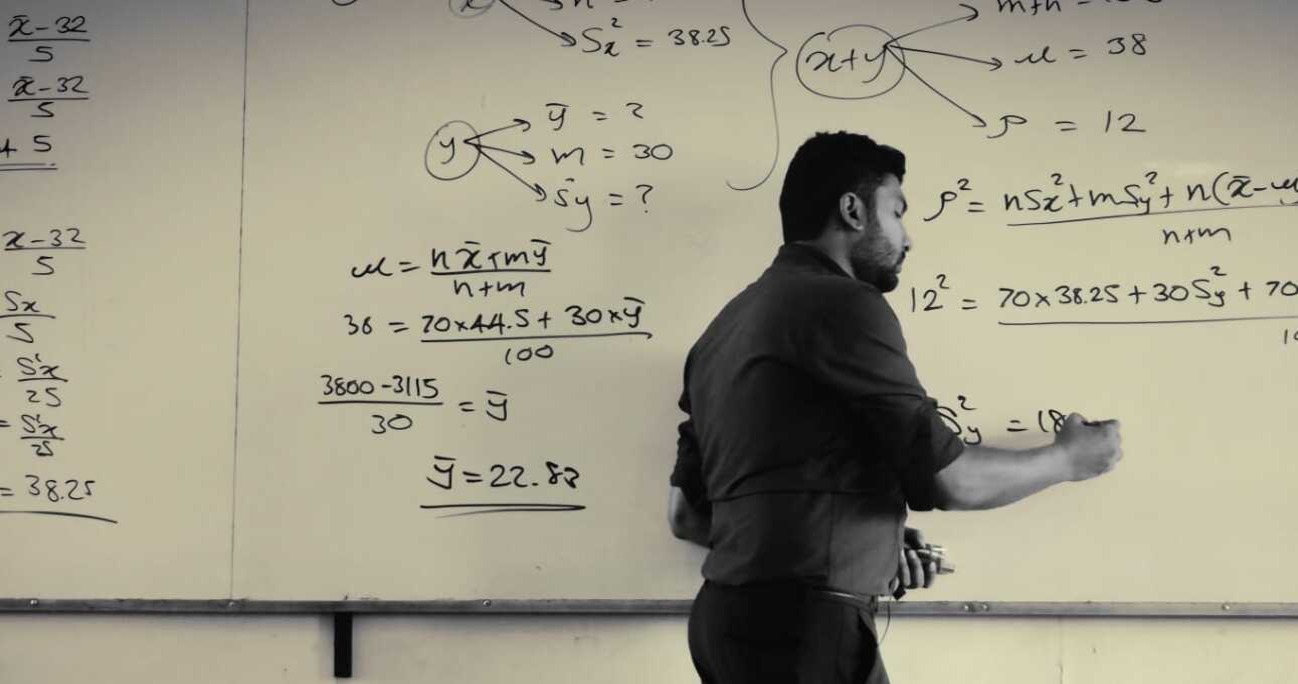 x̄-32
5
x̄-32
5
+ 5
x-32
5
Sx
5
S²x
25
= S²x
25
= 38.25
Sx² = 38.25
y
ȳ = ?
m = 30
Sy = ?
μ = nx̄+mȳ
n+m
38 = 70×44.5 + 30×ȳ
100
3800-3115
30
= ȳ
ȳ = 22.83
x+y
μ = 38
ρ = 12
ρ² = nSx²+mSy²+n(x̄-μ
n+m
12² = 70×38.25 + 30Sy² + 70
Sy² = 18